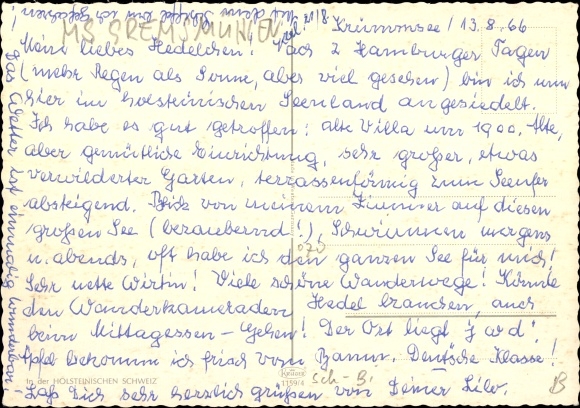 MS GREMSMÜHLEN
Krummsee / 13.8.66
Meine liebes Hedelchen! Nach 2 Hamburger Tagen
(mehr Regen als Sonne, aber viel gesehen) bin ich nun
hier im holsteinischen Seenland angesiedelt.
Ich habe es gut getroffen: alte Villa um 1900. Alte,
aber gemütliche Einrichtung, sehr großer, etwas
verwilderter Garten, terrassenförmig zum Seeufer
absteigend. Blick von meinem Zimmer auf diesen
großen See (bezaubernd!), Schwimmen morgens
u. abends, oft habe ich den ganzen See für mich!
Sehr nette Wirtin! Viele schöne Wanderwege! Könnte
den Wanderkameraden Hedel brauchen, auch
beim Mittagessen - Gehen! Der Ort liegt
Äpfel bekomm ich frisch vom Baum. Deutsche Klasse!
- Laß Dich sehr herzlich grüßen von Deiner Lilo.
Das Wetter ist einmalig wunderbar
In der HOLSTEINISCHEN SCHWEIZ
1159/4
Sch.-B.
B